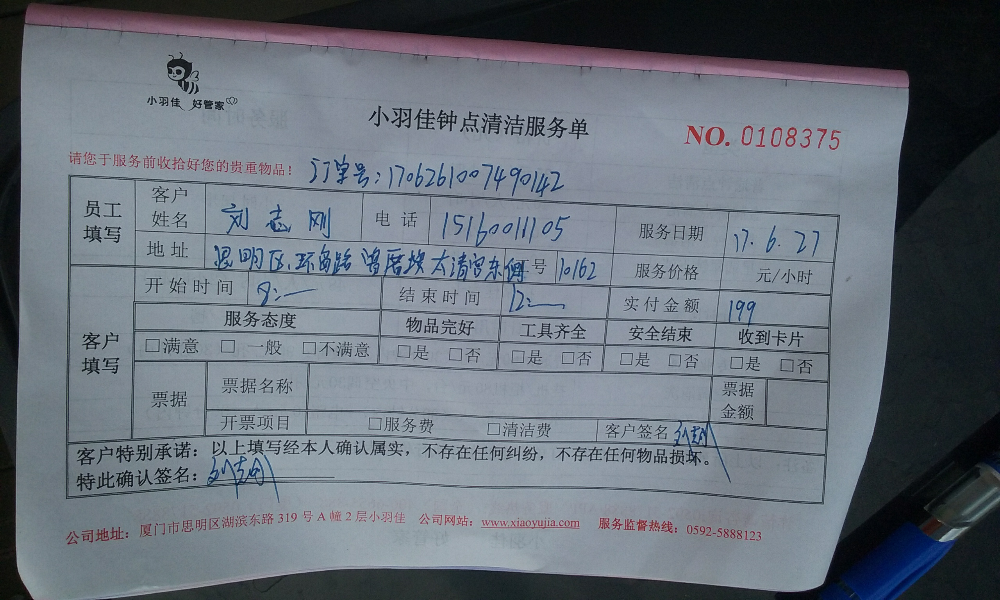 小羽佳 好管家
小羽佳钟点清洁服务单
NO. 0108375
请您于服务前收拾好您的贵重物品！ 订单号：1706261007490142
员工填写 客户姓名 刘志刚 电话 15160011105 服务日期 17.6.27
地址 思明区环岛路曾厝垵太清宫东侧 工号 10162 服务价格 元/小时
客户填写 开始时间 8:— 结束时间 12:— 实付金额 199
服务态度 物品完好 工具齐全 安全结束 收到卡片
□满意 □一般 □不满意 □是 □否 □是 □否 □是 □否 □是 □否
票据 票据名称 票据金额
开票项目 □服务费 □清洁费 客户签名 刘志刚
客户特别承诺：以上填写经本人确认属实，不存在任何纠纷，不存在任何物品损坏。
特此确认签名：刘志刚
公司地址：厦门市思明区湖滨东路 319 号 A 幢 2 层小羽佳 公司网站：www.xiaoyujia.com 服务监督热线：0592-5888123